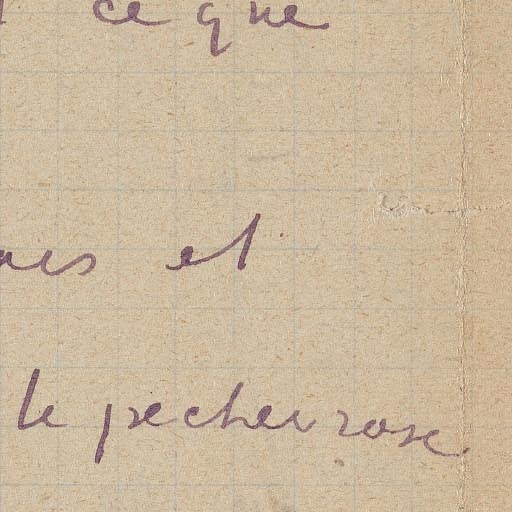 ce que
et
le pecher rose